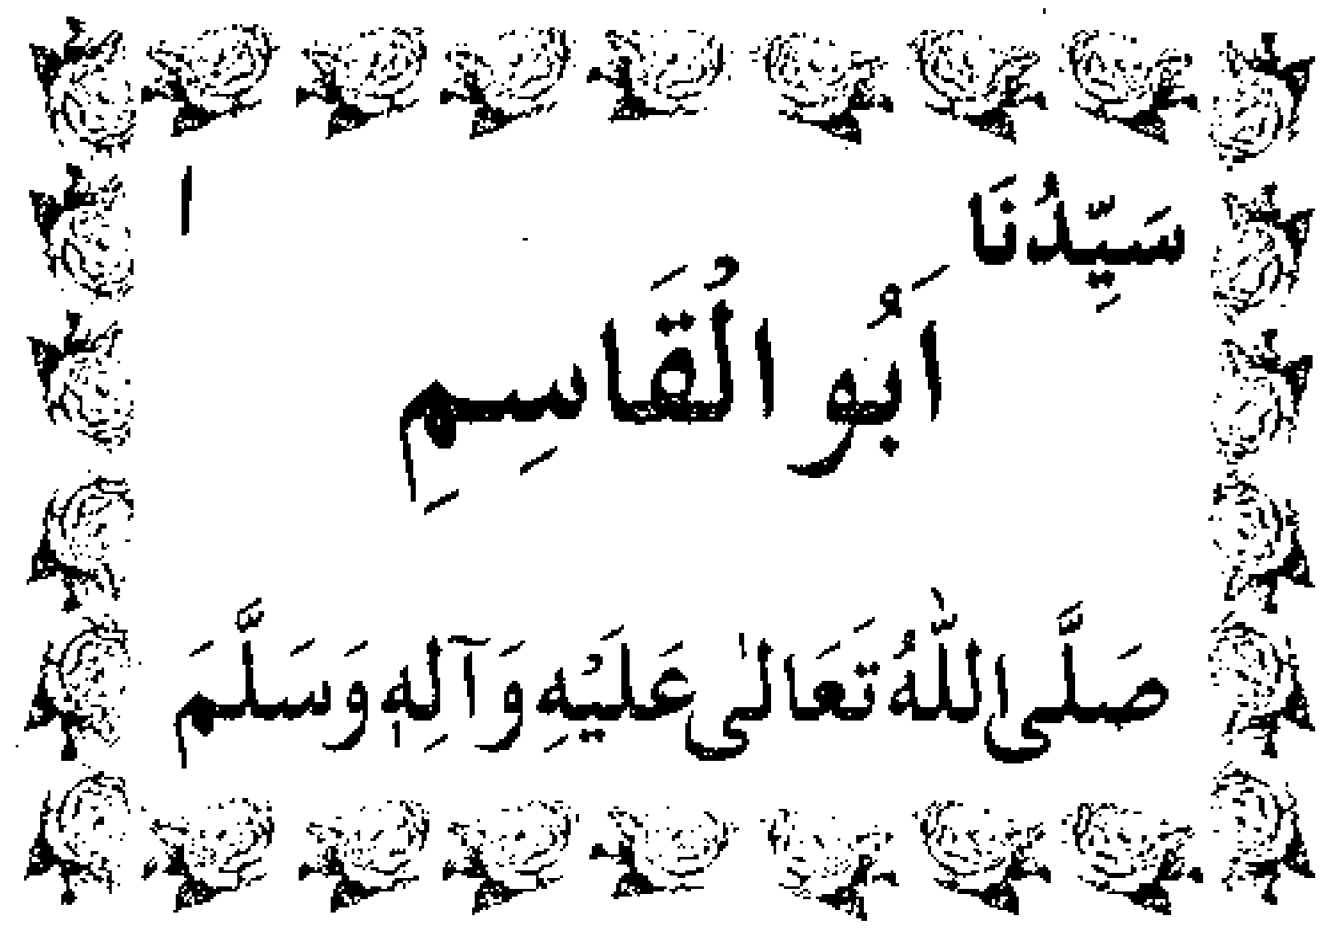 سَيِّدُنَا ١
اَبُو الْقَاسِمِ
صَلَّى اللّٰهُ تَعَالىٰ عَلَيْهِ وَآلِهٖ وَسَلَّمَ